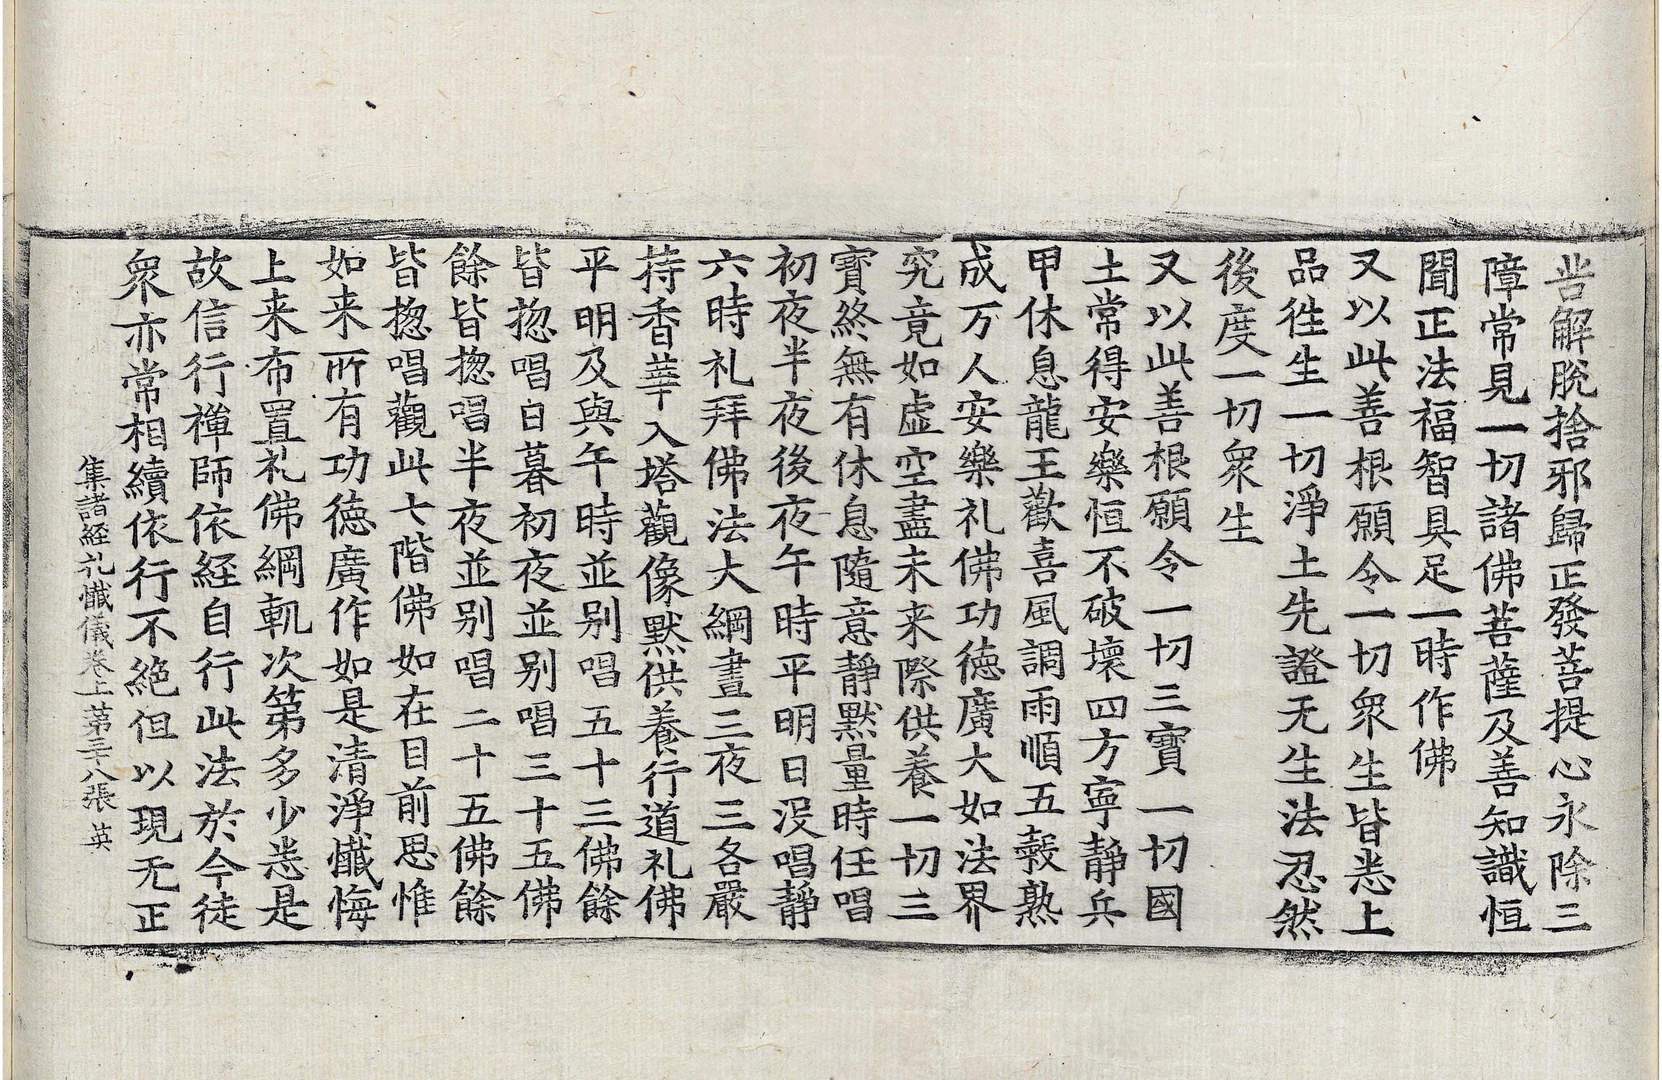 皆解脫捨邪歸正發菩提心永除三
障常見一切諸佛菩薩及善知識恒
聞正法福智具足一時作佛
又以此善根願令一切衆生皆悉上
品徃生一切淨土先證无生法忍然
後度一切衆生
又以此善根願令一切三寶一切國
土常得安樂恒不破壞四方寧靜兵
甲休息龍王歡喜風調雨順五穀熟
成万人安樂礼佛功德廣大如法界
究竟如虛空盡未来際供養一切三
寶終無有休息隨意靜默量時任唱
初夜半夜後夜午時平明日没唱靜
六時礼拜佛法大綱晝三夜三各嚴
持香華入塔觀像默供養行道礼佛
平明及與午時並別唱五十三佛餘
皆揔唱日暮初夜並別唱三十五佛
餘皆揔唱半夜並別唱二十五佛餘
皆揔唱觀此七階佛如在目前思惟
如来所有功德廣作如是清淨懺悔
上来布置礼佛綱軌次第多少悉是
故信行禪師依經自行此法於今徒
衆亦常相續依行不絶但以現无正
集諸經礼懺儀卷上 第三十八張 英